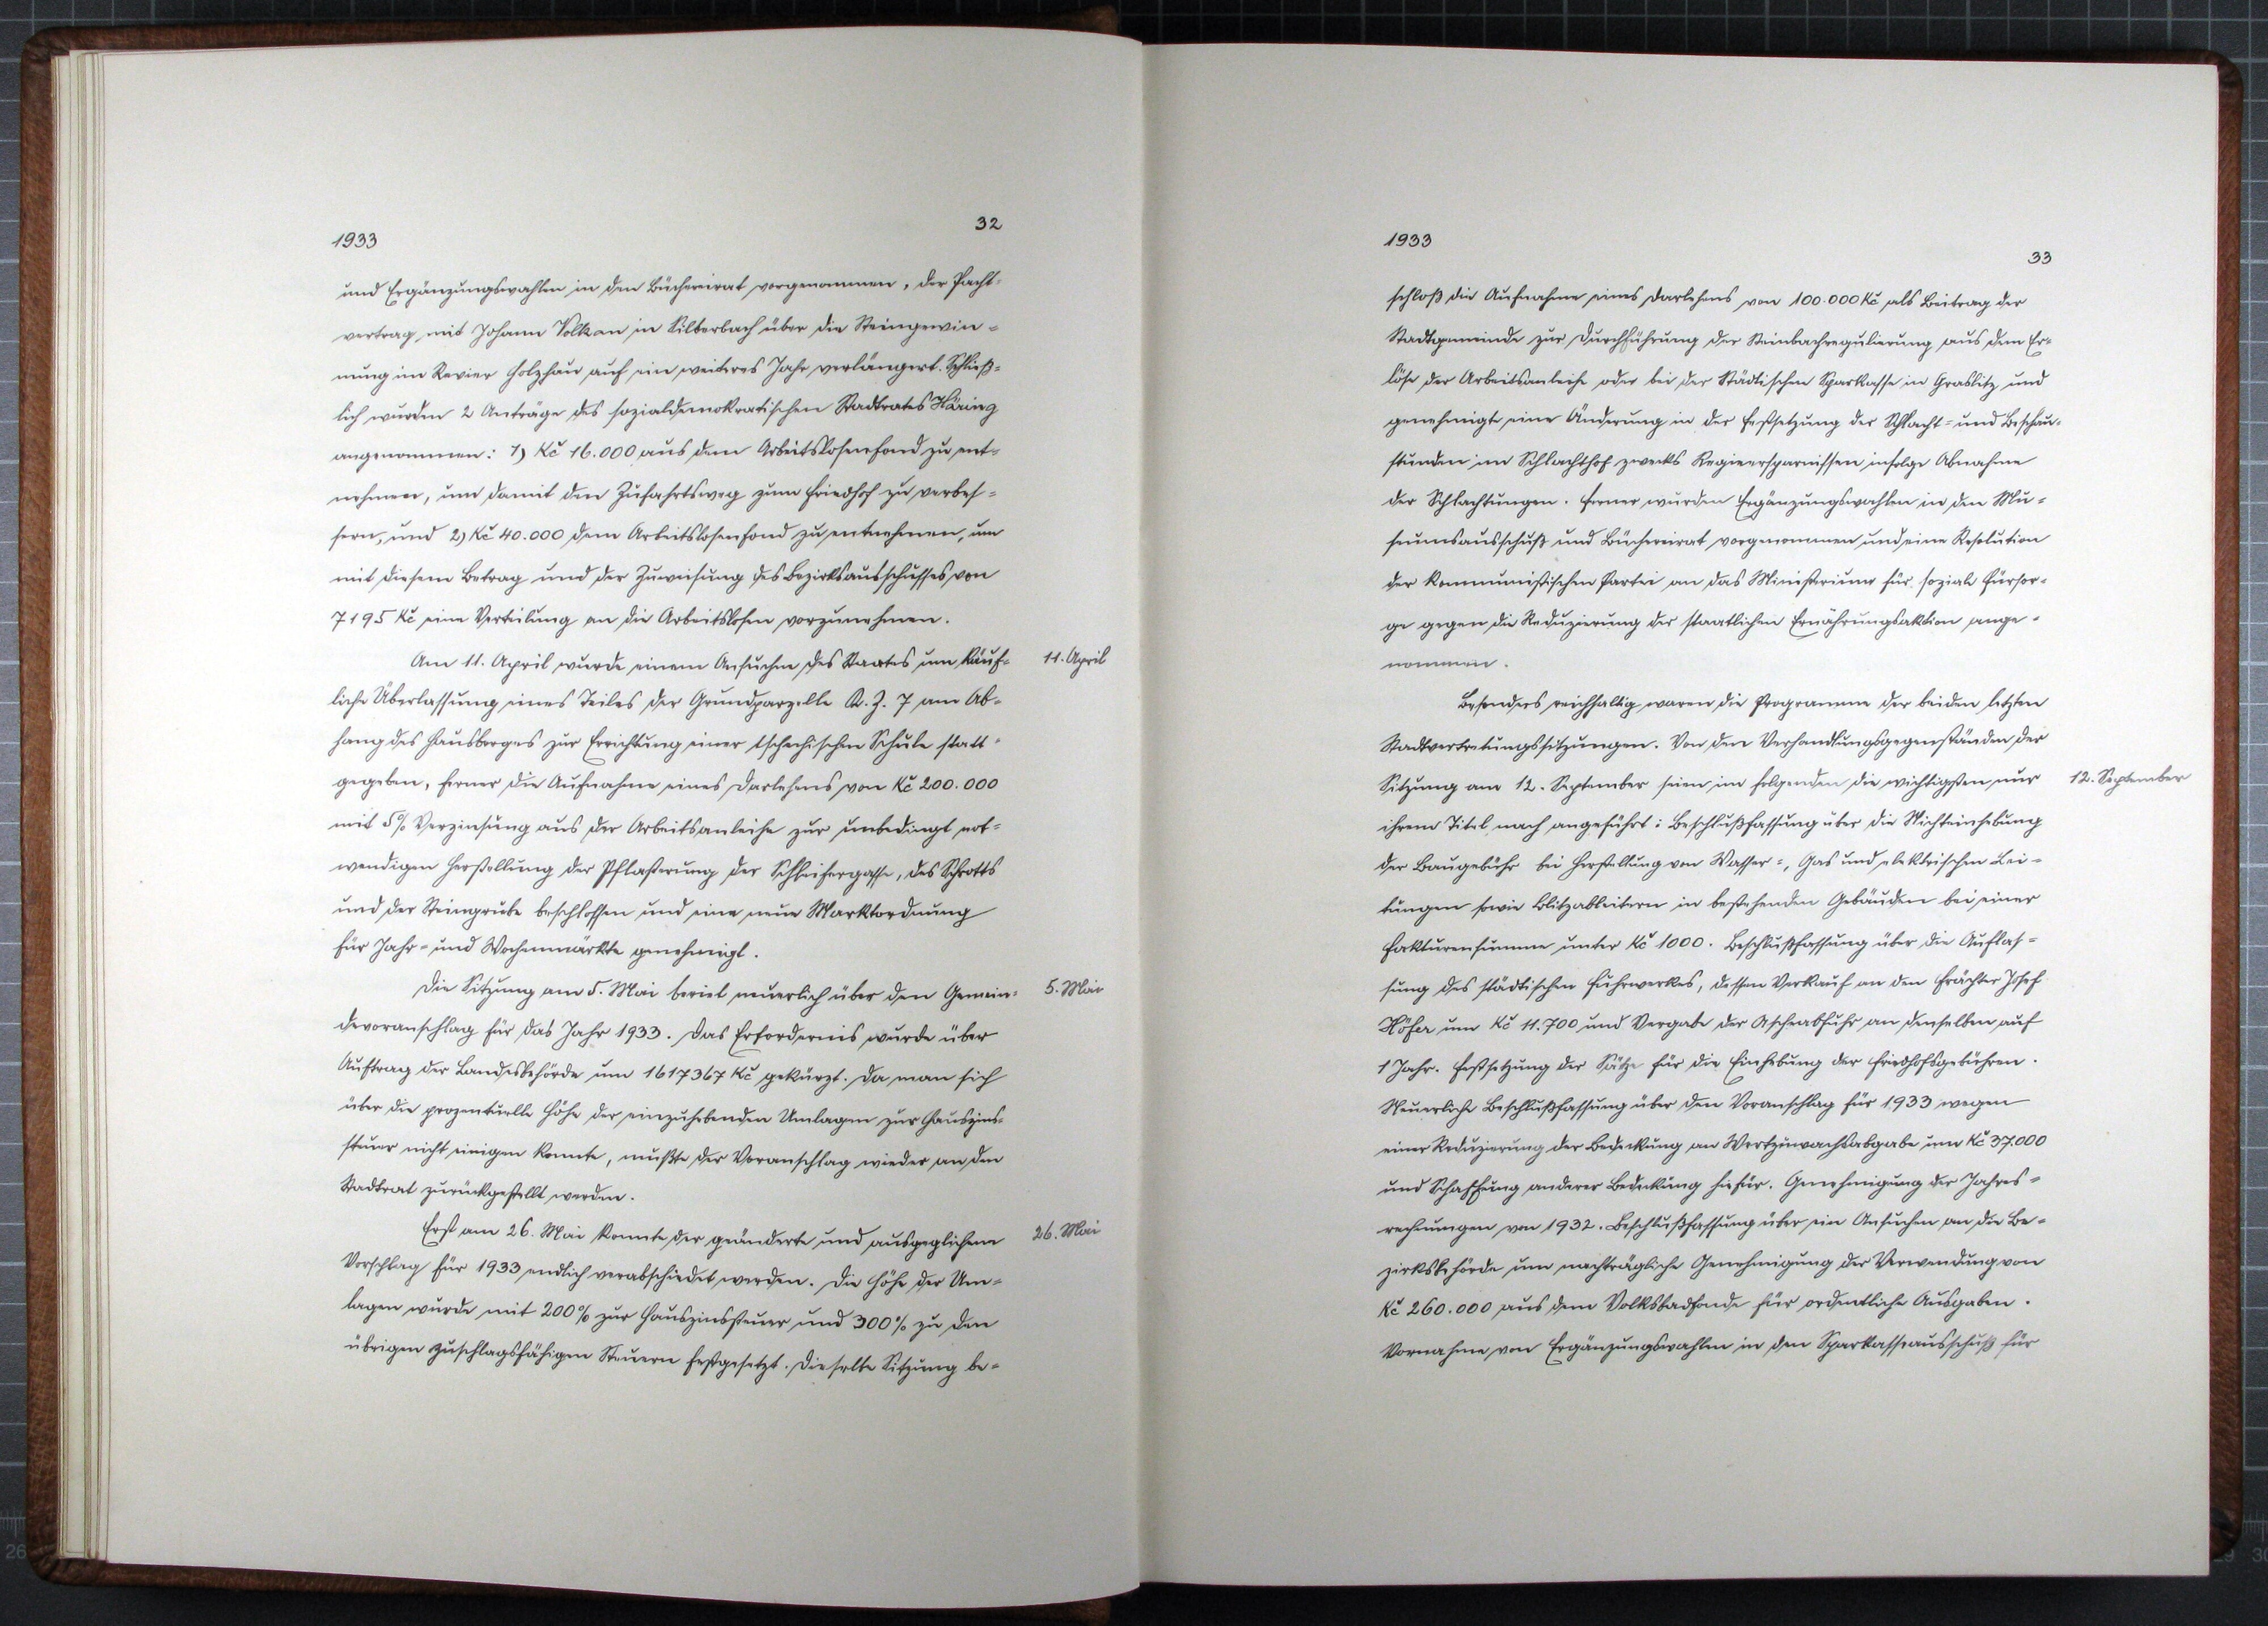 32
1933
und Ergänzungswahlen in den Büchereirat vorgenommen, der Pacht-
vertrag mit Johann Volkan in Silberbach über die Steingewin-
nung im Revier Holzhau auf ein weiteres Jahr verlängert. Schließ-
lich wurden 2 Anträge des sozialdemokratischen Stadtrates Häring
angenommen: 1) Kč 16.000 aus dem Arbeitslosenfond zu ent-
nehmen, um damit den Zufahrtsweg zum Friedhof zu verbes-
sern, und 2) Kč 40.000 dem Arbeitslosenfond zu entnehmen, um
mit diesem Betrag und der Zuweisung des Bezirksausschusses von
7195 Kč eine Verteilung an die Arbeitslosen vorzunehmen.
Am 11. April wurde einem Ansuchen des Staates um käuf-
11. April
liche Überlassung eines Teiles der Grundparzelle K. Z. 7 am Ab-
hang des Hausberges zur Errichtung einer tschechischen Schule statt-
gegeben, ferner die Aufnahme eines Darlehens von Kč 200.000
mit 5% Verzinsung aus der Arbeitsanleihe zur unbedingt not-
wendigen Herstellung der Pflasterung der Schleifergasse, des Schrotts
und der Steingrube beschlossen und eine neue Marktordnung
für Jahr- und Wochenmärkte genehmigt.
Die Sitzung am 5. Mai beriet neuerlich über den Gemein-
5. Mai
devoranschlag für das Jahr 1933. Das Erfordernis wurde über
Auftrag der Landesbehörde um 1617367 Kč gekürzt. Da man sich
über die prozentuelle Höhe der einzuhebenden Umlagen zur Hauszins-
steuer nicht einigen konnte, mußte der Voranschlag wieder an den
Stadtrat zurückgestellt werden.
Erst am 26. Mai konnte der geänderte und ausgeglichene
26. Mai
Vorschlag für 1933 endlich verabschiedet werden. Die Höhe der Um-
lagen wurde mit 200% zur Hauszinssteuer und 300% zu den
übrigen zuschlagsfähigen Steuern festgesetzt. Dieselbe Sitzung be-
1933
33
schloß die Aufnahme eines Darlehens von 100.000 Kč als Beitrag der
Stadtgemeinde zur Durchführung der Steinbachregulierung aus dem Er-
löse der Arbeitsanleihe oder bei der Städtischen Sparkasse in Graslitz und
genehmigte eine Änderung in der Festsetzung der Schlacht- und Beschau-
stunden im Schlachthof zwecks Regieersparnissen infolge Abnahme
der Schlachtungen. Ferner wurden Ergänzungswahlen in den Mu-
seumsausschuß und Büchereirat vorgenommen und eine Resolution
der kommunistischen Partei an das Ministerium für soziale Fürsor-
ge gegen die Reduzierung der staatlichen Ernährungsaktion ange-
nommen.
Besonders reichhaltig waren die Programme der beiden letzten
Stadtvertretungssitzungen. Von den Verhandlungsgegenständen der
Sitzung am 12. September seien im folgenden die wichtigsten nur
12. September
ihrem Titel nach angeführt: Beschlußfassung über die Nichteinhebung
der Baugebühr bei Herstellung von Wasser-, Gas und elektrischen Lei-
tungen sowie Blitzableitern in bestehenden Gebäuden bei einer
Fakturensumme unter Kč 1000. Beschlußfassung über die Auflas-
sung des städtischen Fuhrwerkes, dessen Verkauf an den Frächter Josef
Höfer um Kč 11.700 und Vergabe der Ascheabfuhr an denselben auf
1 Jahr. Festsetzung der Sätze für die Einhebung der Friedhofsgebühren.
Neuerliche Beschlußfassung über den Voranschlag für 1933 wegen
einer Reduzierung der Bedeckung an Wertzuwachsabgabe um Kč 37.000
und Schaffung anderer Bedeckung hiefür. Genehmigung der Jahres-
rechnungen von 1932. Beschlußfassung über ein Ansuchen an die Be-
zirksbehörde um nachträgliche Genehmigung der Verwendung von
Kč 260.000 aus dem Volksbadfonde für ordentliche Ausgaben.
Vornahme von Ergänzungswahlen in den Sparkasseausschuß für